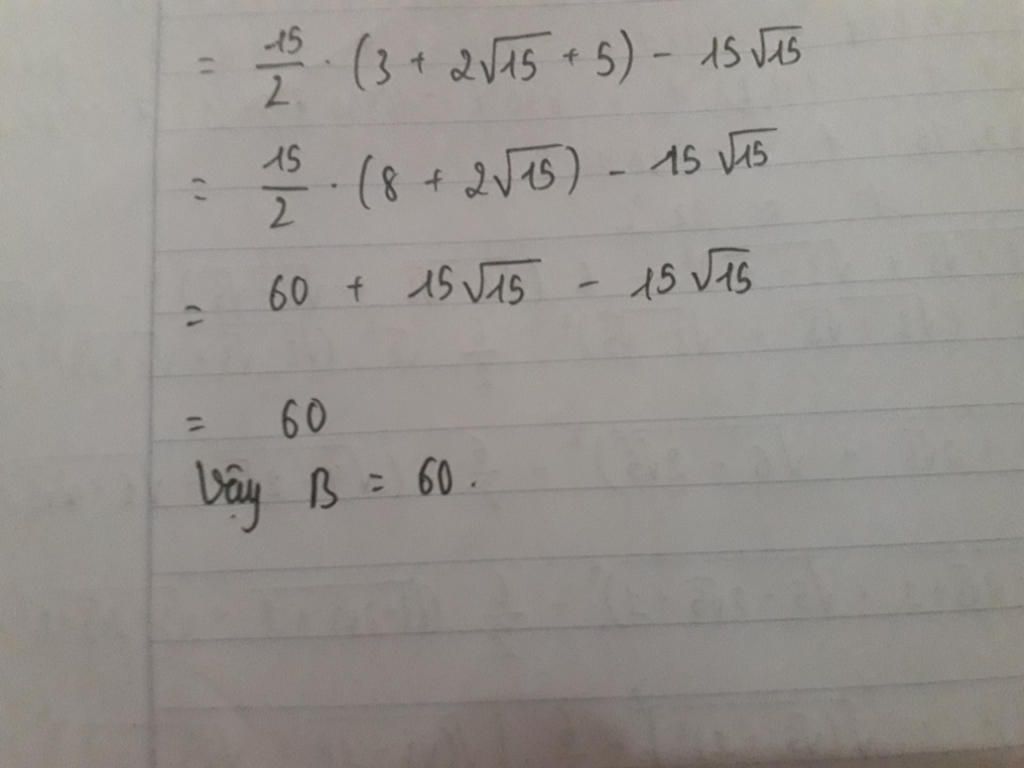 = 15/2 · (3 + 2√15 + 5) - 15√15
= 15/2 · (8 + 2√15) - 15√15
= 60 + 15√15 - 15√15
= 60
Vậy B = 60.